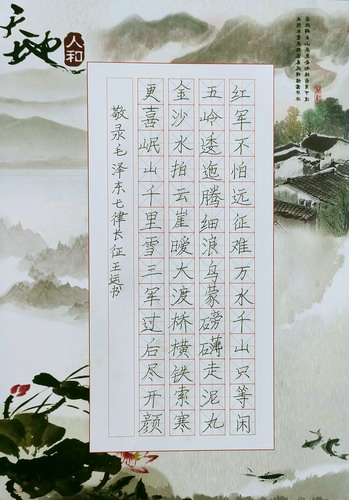 天地
人和
红军不怕远征难万水千山只等闲
五岭逶迤腾细浪乌蒙磅礴走泥丸
金沙水拍云崖暖大渡桥横铁索寒
更喜岷山千里雪三军过后尽开颜
敬录毛泽东七律长征王运书